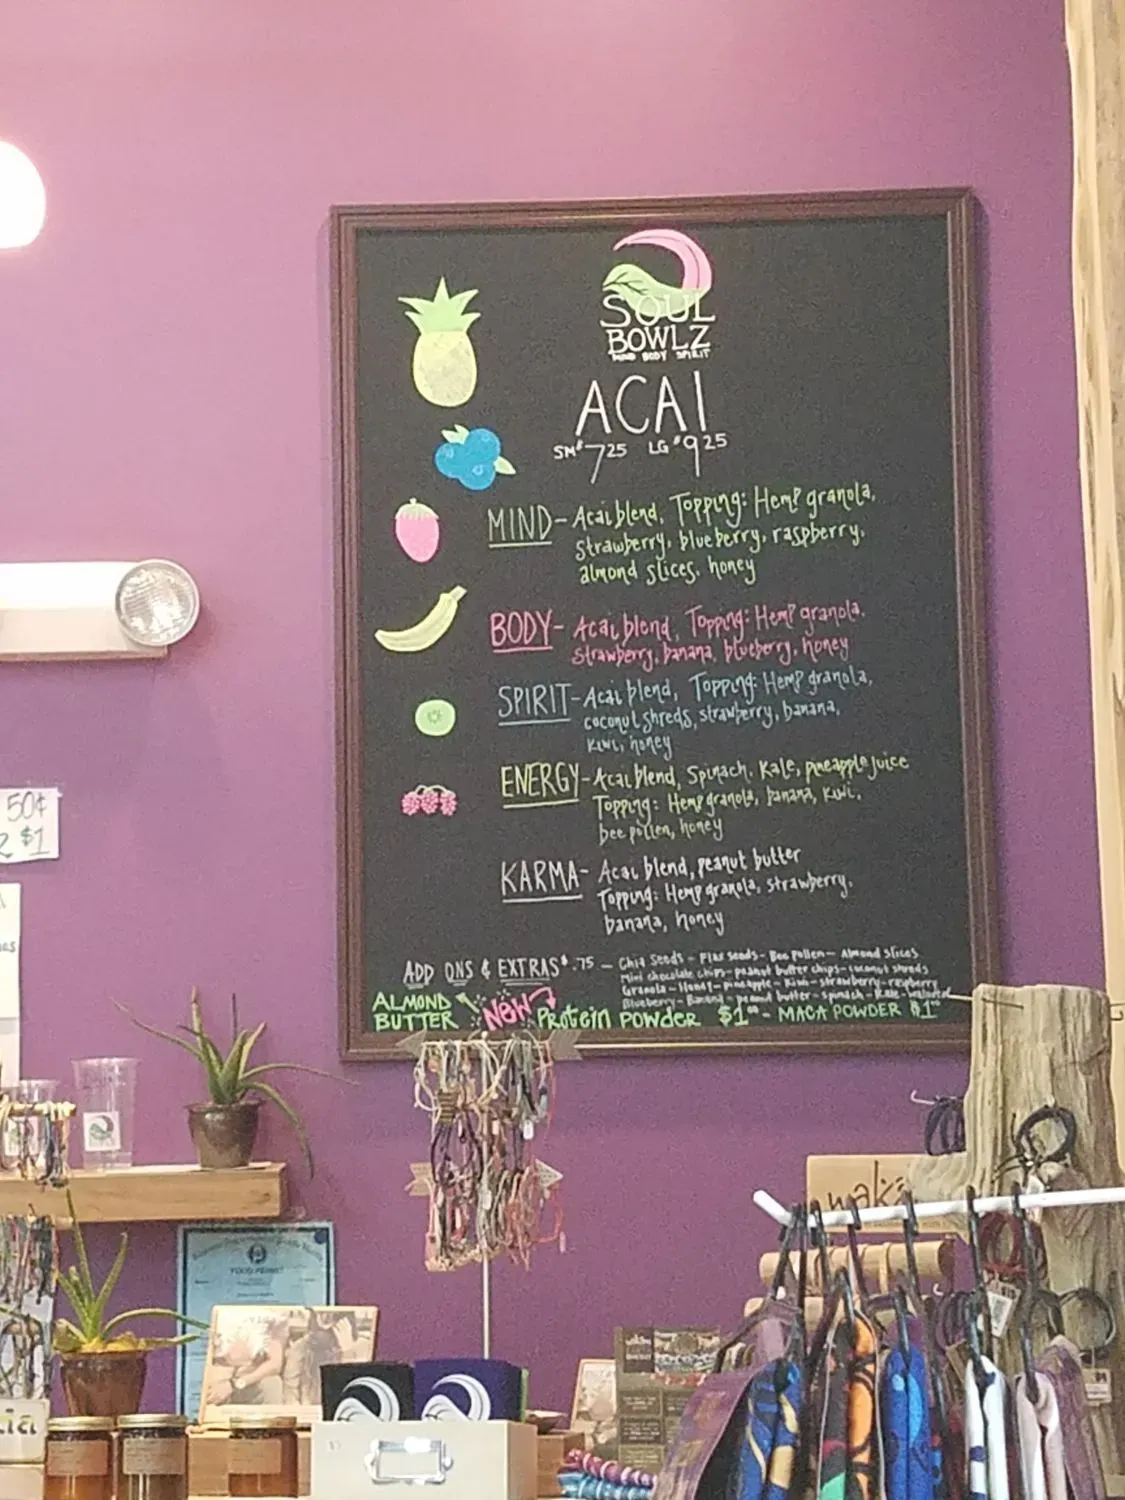 SOUL
BOWLZ
MIND BODY SPIRIT
ACAI
SM $7.25 LG $9.25
MIND - Acai blend, Topping: Hemp granola,
strawberry, blueberry, raspberry,
almond slices, honey
BODY - Acai blend, Topping: Hemp granola,
strawberry, banana, blueberry, honey
SPIRIT - Acai blend, Topping: Hemp granola,
coconut shreds, strawberry, banana,
kiwi, honey
ENERGY - Acai blend, Spinach, Kale, pineapple juice
Topping: Hemp granola, banana, kiwi,
bee pollen, honey
KARMA - Acai blend, peanut butter
Topping: Hemp granola, strawberry,
banana, honey
ADD ONS & EXTRAS $.75 - Chia Seeds - Flax seeds - Bee Pollen - Almond slices
mini chocolate chips - peanut butter chips - coconut shreds
Granola - Honey - pineapple - Kiwi - strawberry - raspberry
Blueberry - Banana - peanut butter - spinach - Kale -
ALMOND
BUTTER NEW Protein POWDER $1.00 - MACA POWDER $1.00
50¢
$1
FOOD PERMIT
waka